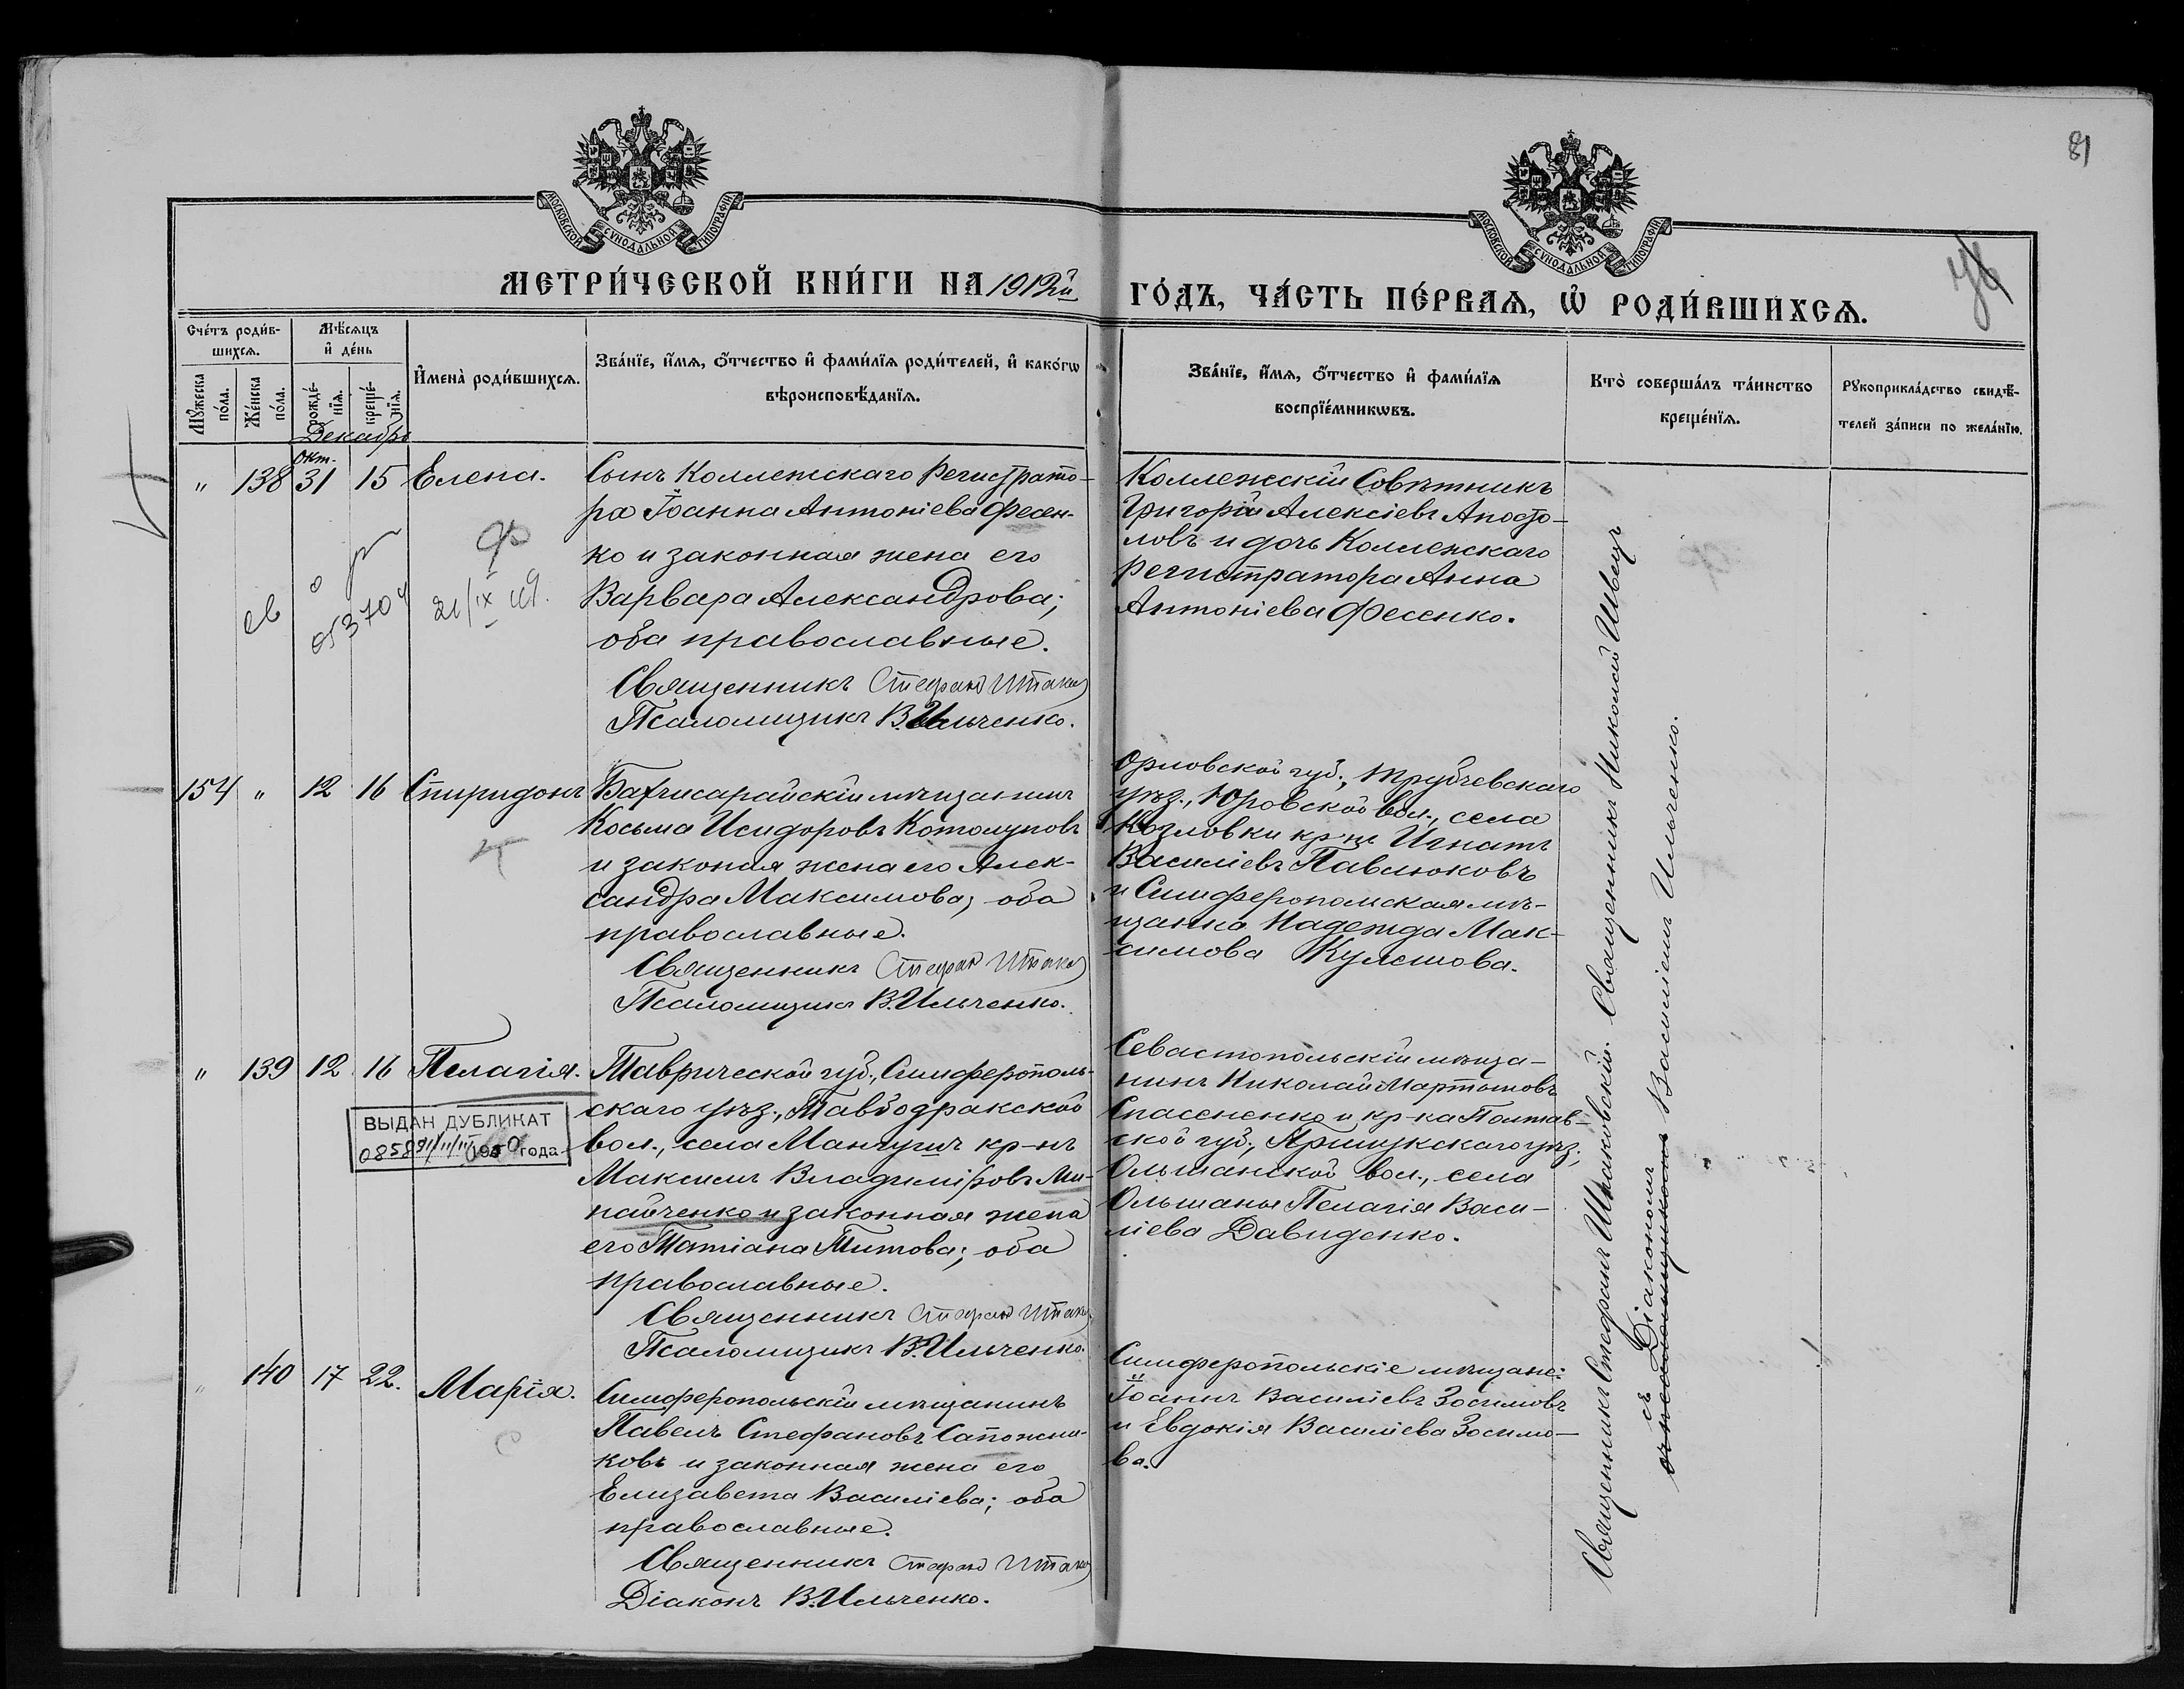 81
МОСКОВСКОЙ СѴНОДАЛЬНОЙ ТИПОГРАФІИ
МОСКОВСКОЙ СѴНОДАЛЬНОЙ ТИПОГРАФІИ
МЕТРИ́ЧЕСКОЙ КНИ́ГИ НА 1912й
ГО́ДЪ, ЧА́СТЬ ПЕ́РВАѦ, Ѡ҆ РОДИ́ВШИХСѦ.
Сче́тъ роди́в-
шихсѧ.
Мѹжеска по́ла.
Же́нска по́ла.
Мѣ́сѧцъ
и҆ де́нь
рожде́-
нїѧ.
креще́-
нїѧ.
И҆мена̀ роди́вшихсѧ.
Зва́нїе, и҆́мѧ, ѻ҆́тчество и҆ фами́лїѧ роди́телей, и҆ како́гѡ
вѣроисповѣ́данїѧ.
Зва́нїе, и҆́мѧ, ѻ҆́тчество и҆ фами́лїѧ
воспрїе́мникѡвъ.
Кто̀ соверша́лъ та́инство
креще́нїѧ.
Рꙋкоприкла́дство свидѣ́-
телей за́писи по жела́нїю.
Декабрь
Окт.
" 138 31 15 Елена.
Сынъ Коллежскаго Регистрато-
ра Іоанна Антоніева Фесен-
ко и законная жена его
Варвара Александрова;
оба православные.
Священникъ Стефанъ Шпаков
Псаломщикъ В. Ильченко.
Коллежскій Совѣтникъ
Григорій Алексіевъ Апосто-
ловъ и дочь Коллежскаго
Регистратора Анна
Антоніева Фесенко.
Ф
21/IX
154 " 12 16 Спиридонъ
Бахчисарайскій мѣщанинъ
Косьма Исидоровъ Котолуповъ
и законая жена его Алек-
сандра Максимова; оба
православные.
Священникъ Стефан Шпаков
Псаломщикъ В. Ильченко.
Орловской губ., Трубчевскаго
уѣз., Юровской вол., села
Козловки кр-нъ Игнатъ
Василіевъ Павлюковъ
и Симферопольская мѣ-
щанка Надежда Мак-
симова Кулешова.
" 139 12 16 Пелагія.
ВЫДАН ДУБЛИКАТ
1950 года
Таврической губ., Симферополь-
скаго уѣз., Тавбодракской
вол., села Мангушъ кр-нъ
Максимъ Владиміровъ Ми-
найченко и законная жена
его Татіана Титова; оба
православные.
Священникъ Стефанъ Шпаков
Псаломщикъ В. Ильченко.
Севастопольскій мѣща-
нинъ Николай Мартыновъ
Спасененко и кр-ка Полтав-
ской губ., Прилукскаго уѣз.,
Ольшанской вол., села
Ольшаны Пелагія Васи-
ліева Давиденко.
" 140 17 22. Марія.
Симферопольскій мѣщанинъ
Павелъ Стефановъ Сапожни-
ковъ и законная жена его
Елизавета Василіева; оба
православные.
Священникъ Стефанъ Шпаков
Діаконъ В. Ильченко.
Симферопольскіе мѣщане:
Іоаннъ Василіевъ Зосимовъ
и Евдокія Василіева Зосимо-
ва.
Священникъ Стефанъ Шпаковскій. Священникъ Николай Швецъ
съ Діакономъ
съ псаломщикомъ Василіемъ Ильченко.